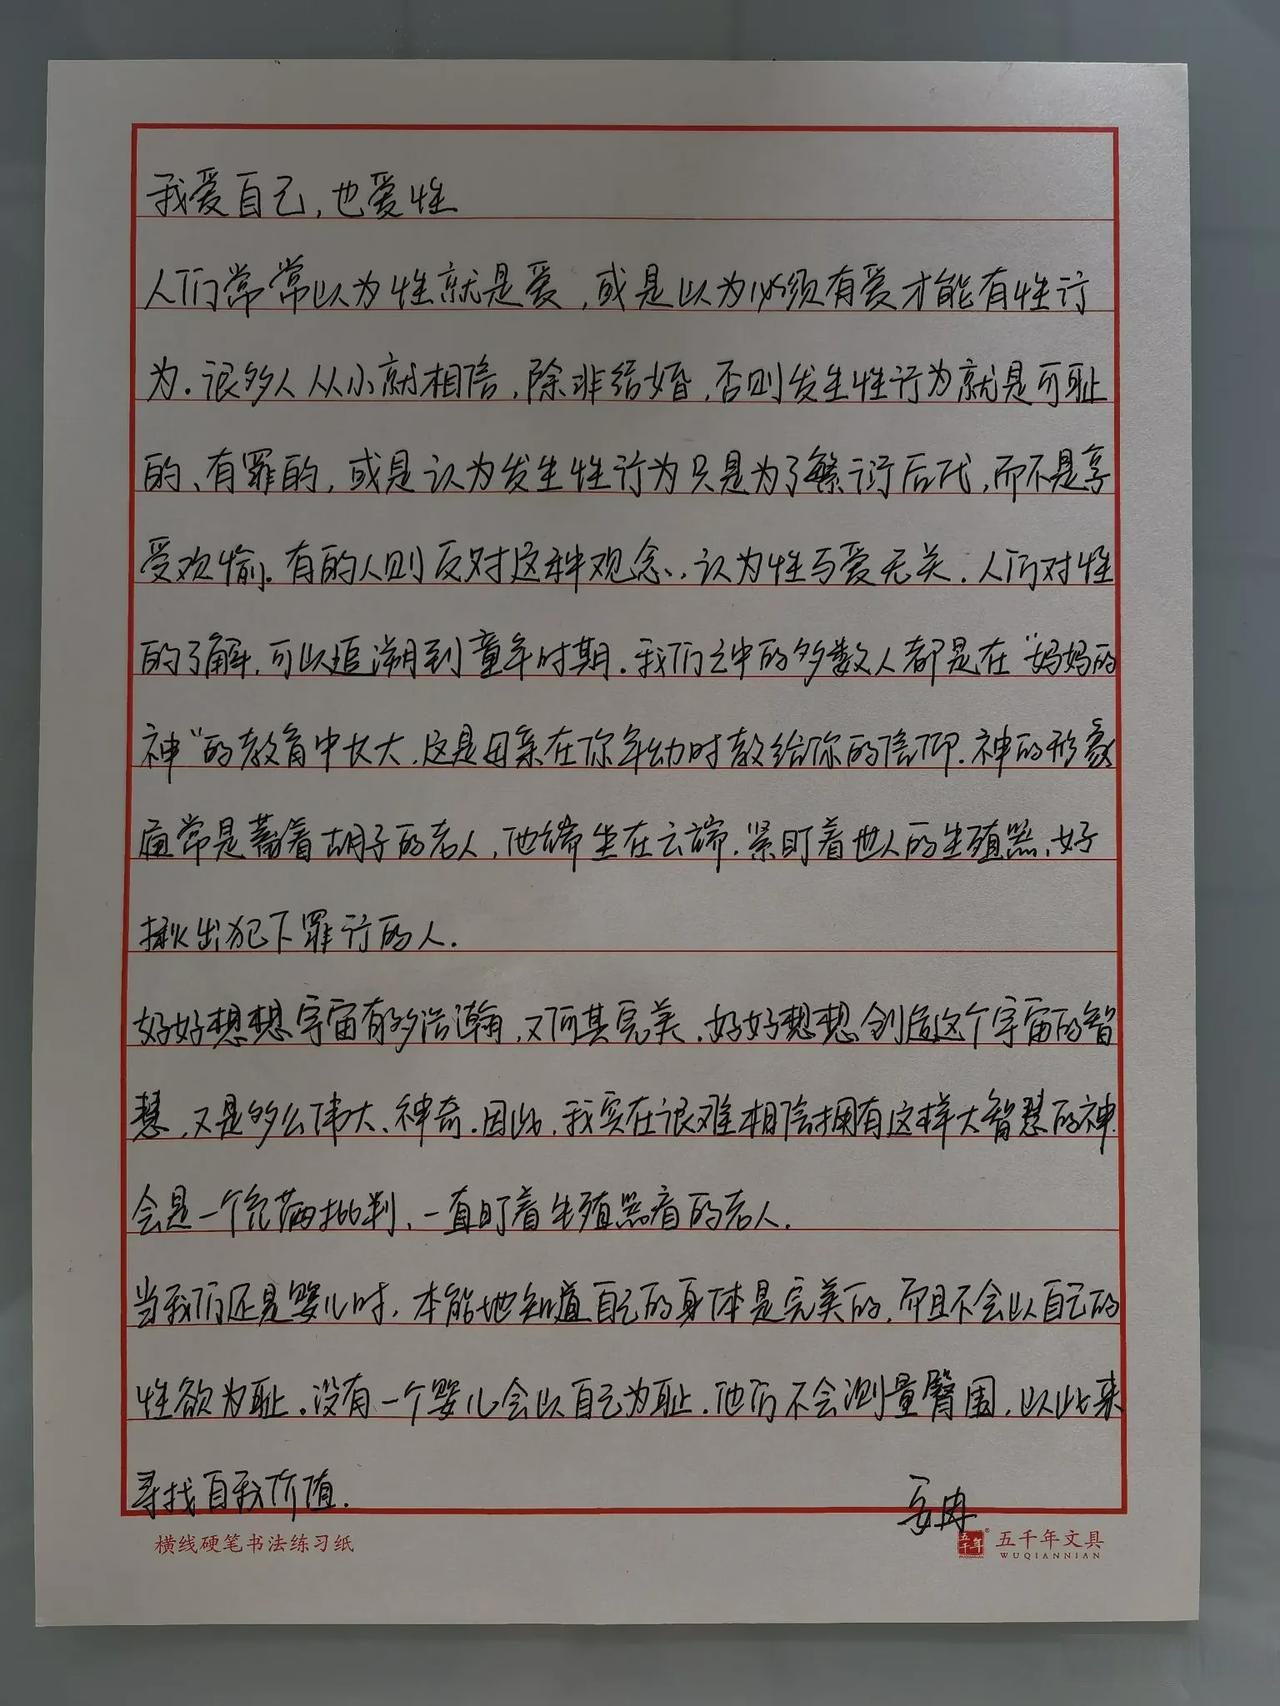 我爱自己,也爱性
人们常常以为性就是爱,或是以为必须有爱才能有性行
为.很多人从小就相信,除非结婚,否则发生性行为就是可耻
的、有罪的,或是认为发生性行为只是为了繁衍后代,而不是享
受欢愉。有的人则反对这种观念,认为性与爱无关.人们对性
的了解,可以追溯到童年时期.我们之中的多数人都是在“妈妈的
神”的教育中长大,这是母亲在你年幼时教给你的信仰.神的形象
通常是蓄着胡子的老人,他端坐在云端.紧盯着世人的生殖器,好
揪出犯下罪行的人.
好好想想宇宙有多浩瀚,又何其完美.好好想想创造这个宇宙的智
慧,又是多么伟大、神奇.因此,我实在很难相信拥有这样大智慧的神
会是一个负荷批判、一直盯着生殖器看的老人.
当我们还是婴儿时,本能地知道自己的身体是完美的,而且不会以自己的
性欲为耻.没有一个婴儿会以自己为耻.他们不会测量臀围,以此来
寻找自我价值.
横线硬笔书法练习纸
五千年
五千年文具
WUQIANNIAN